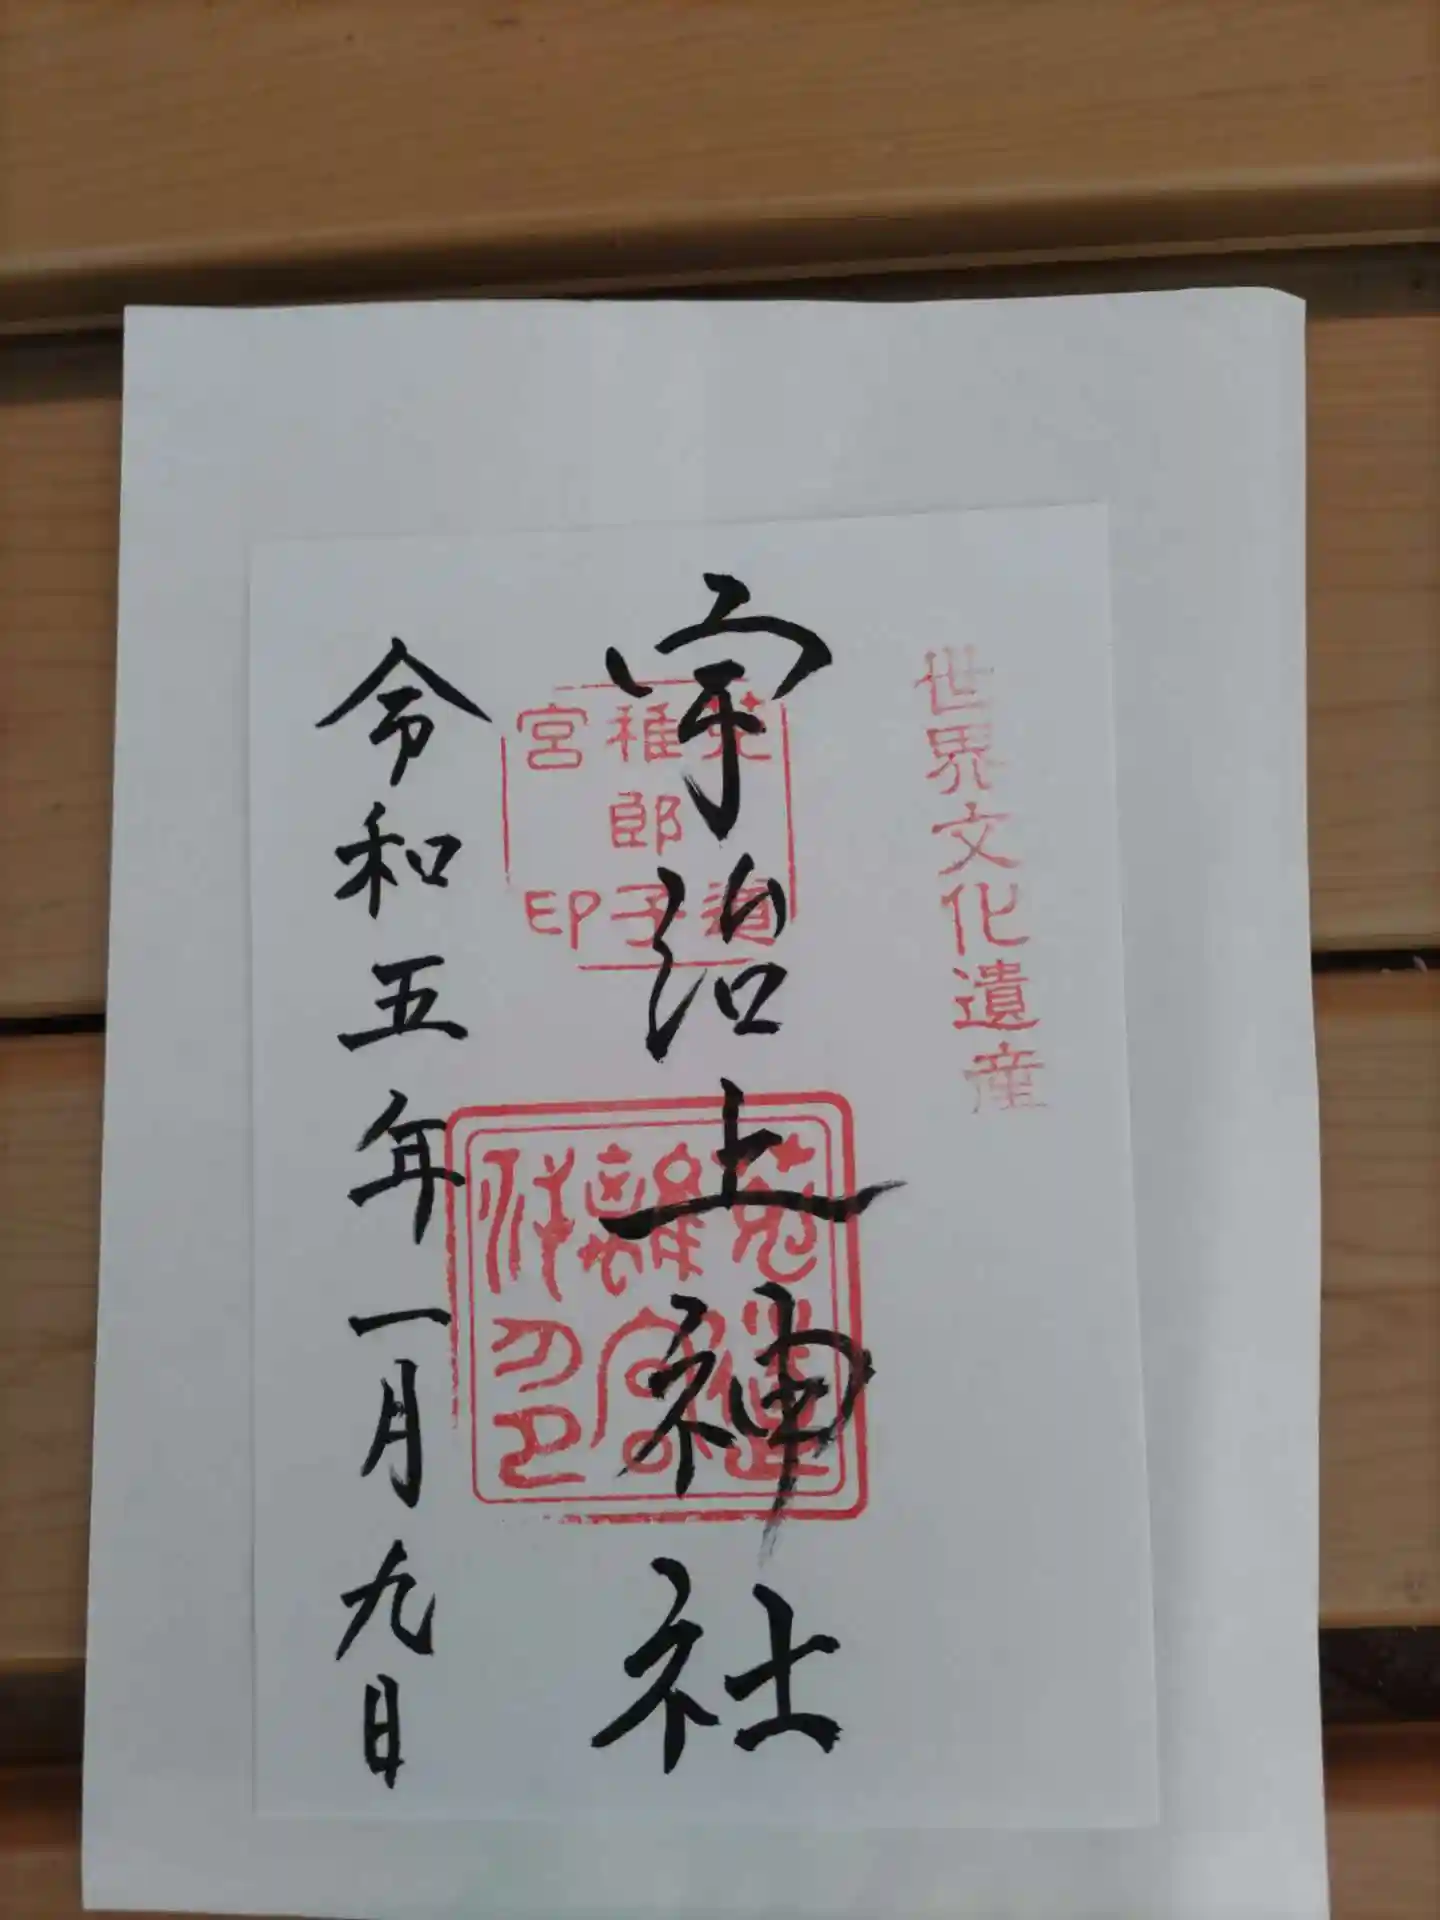 世界文化遺産
宇治上神社
菟道
稚郎子
宮印
令和五年一月九日